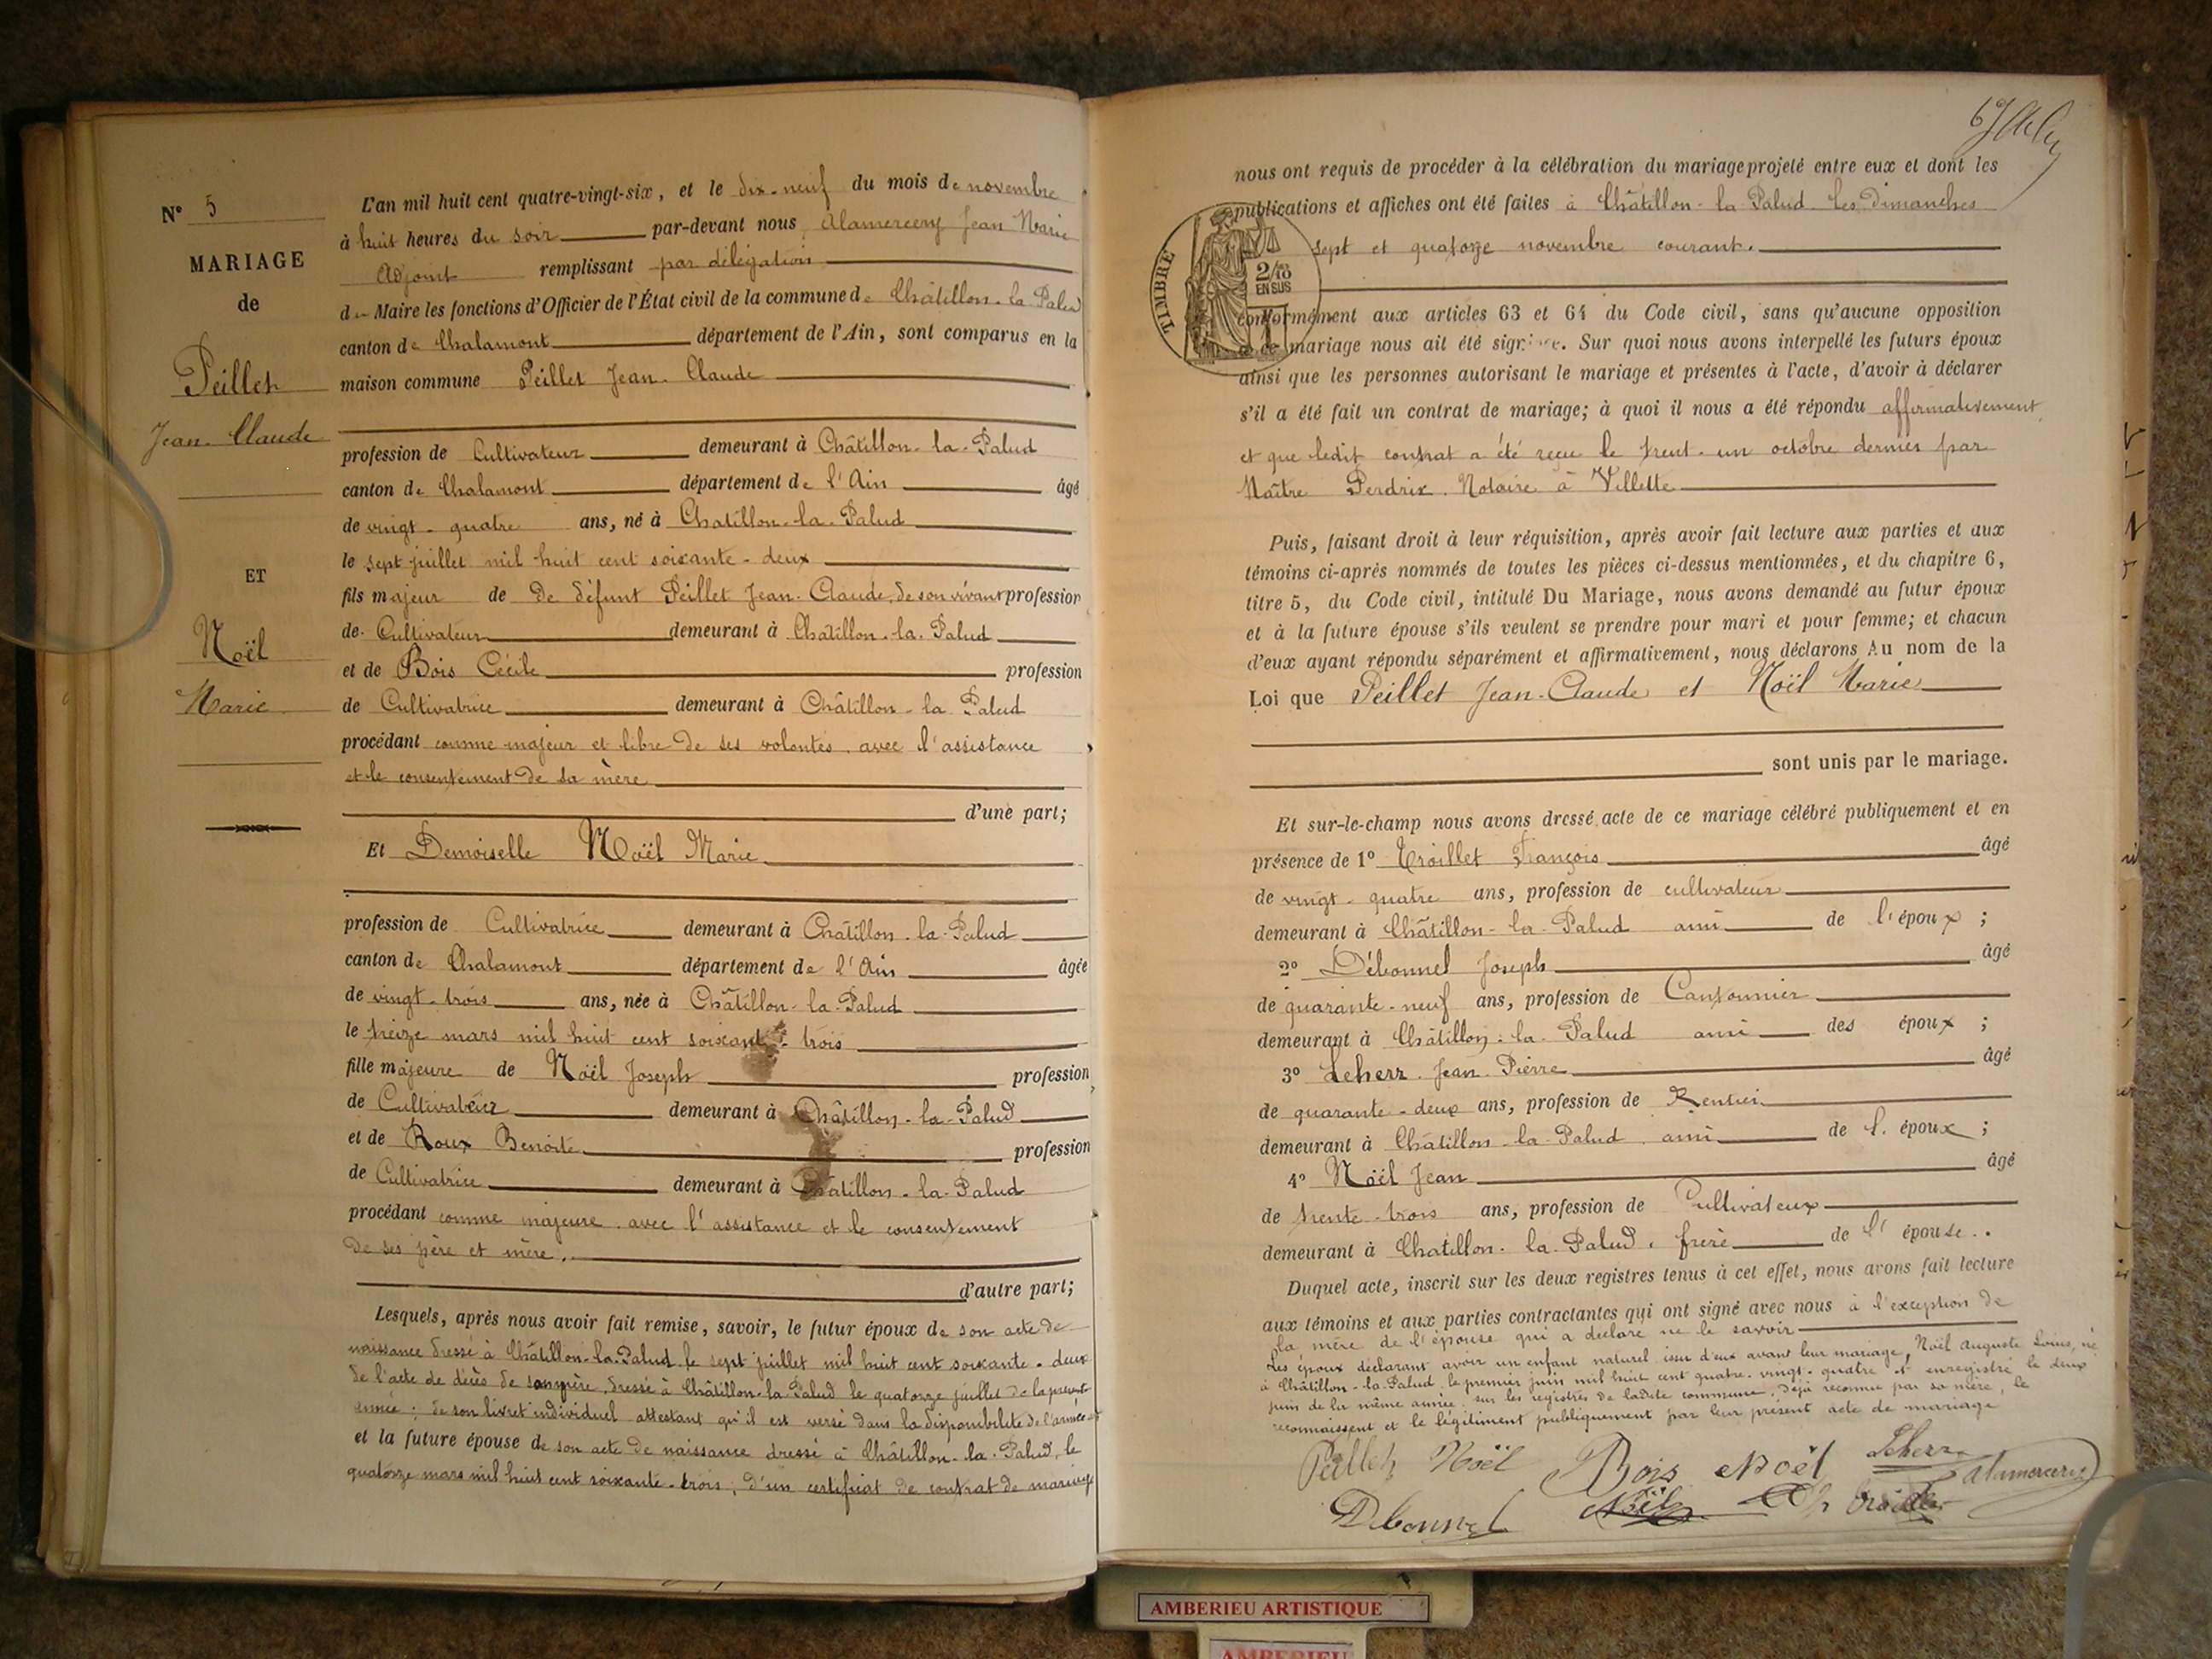 N° 5
MARIAGE
de
Peillet
Jean-Claude
ET
Noël
Marie
L'an mil huit cent quatre-vingt-six, et le dix-neuf du mois de novembre
à huit heures du soir par-devant nous Alamercery Jean Marie
Adjoint remplissant par délégation
du Maire les fonctions d'Officier de l'État civil de la commune de Châtillon-la-Palud
canton de Chalamont département de l'Ain, sont comparus en la
maison commune Peillet Jean-Claude
profession de Cultivateur demeurant à Châtillon-la-Palud
canton de Chalamont département de l'Ain âgé
de vingt-quatre ans, né à Chatillon-la-Palud
le sept juillet mil huit cent soixante-deux
fils majeur de De défunt Peillet Jean-Claude, de son vivant profession
de Cultivateur demeurant à Châtillon-la-Palud
et de Bois Cécile profession
de Cultivatrice demeurant à Châtillon-la Palud
procédant comme majeur et libre de ses volontés avec l'assistance
et le consentement de sa mère
d'une part;
Et Demoiselle Noël Marie
profession de Cultivatrice demeurant à Châtillon-la-Palud
canton de Chalamont département de l'Ain âgée
de vingt-trois ans, née à Châtillon-la-Palud
le treize mars mil huit cent soixante-trois
fille majeure de Noël Joseph profession
de Cultivateur demeurant à Châtillon-la-Palud
et de Roux Benoite profession
de Cultivatrice demeurant à Chatillon-la-Palud
procédant comme majeure avec l'assistance et le consentement
de ses père et mère.
d'autre part;
Lesquels, après nous avoir fait remise, savoir, le futur époux de son acte de
naissance dressé à Châtillon-la-Palud le sept juillet mil huit cent soixante-deux
de l'acte de décès de son père dressé à Châtillon-la-Palud le quatorze juillet de la présente
année; de son livret individuel attestant qu'il est versé dans la disponibilité de l'armée
et la future épouse de son acte de naissance dressé à Châtillon-la-Palud, le
quatorze mars mil huit cent soixante-trois; d'un certificat de contrat de mariage
nous ont requis de procéder à la célébration du mariage projeté entre eux et dont les
publications et affiches ont été faites à Châtillon-la-Palud les dimanches
sept et quatorze novembre courant.
TIMBRE
2/10
EN SUS
conformément aux articles 63 et 64 du Code civil, sans qu'aucune opposition
à ce mariage nous ait été signifiée. Sur quoi nous avons interpellé les futurs époux
ainsi que les personnes autorisant le mariage et présentes à l'acte, d'avoir à déclarer
s'il a été fait un contrat de mariage; à quoi il nous a été répondu affirmativement
et que ledit contrat a été reçu le trent-un octobre dernier par
Maître Perdrix Notaire à Villette
Puis, faisant droit à leur réquisition, après avoir fait lecture aux parties et aux
témoins ci-après nommés de toutes les pièces ci-dessus mentionnées, et du chapitre 6,
titre 5, du Code civil, intitulé Du Mariage, nous avons demandé au futur époux
et à la future épouse s'ils veulent se prendre pour mari et pour femme; et chacun
d'eux ayant répondu séparément et affirmativement, nous déclarons Au nom de la
Loi que Peillet Jean-Claude et Noël Marie
sont unis par le mariage.
Et sur-le-champ nous avons dressé acte de ce mariage célébré publiquement et en
présence de 1° Troillet François âgé
de vingt-quatre ans, profession de cultivateur
demeurant à Châtillon-la-Palud ami de l'époux;
2° Débonnel Joseph âgé
de quarante-neuf ans, profession de Cantonnier
demeurant à Châtillon-la-Palud ami des époux;
3° Leherr Jean-Pierre âgé
de quarante-deux ans, profession de Rentier
demeurant à Châtillon-la-Palud ami de l'époux;
4° Noël Jean âgé
de trente-trois ans, profession de Cultivateur
demeurant à Chatillon-la-Palud, frère de l'épouse.
Duquel acte, inscrit sur les deux registres tenus à cet effet, nous avons fait lecture
aux témoins et aux parties contractantes qui ont signé avec nous à l'exception de
la mère de l'épouse qui a déclaré ne le savoir
Les époux déclarant avoir un enfant naturel issu d'eux avant leur mariage, Noël Auguste Louis, né
à Châtillon-la-Palud le premier juin mil huit cent quatre-vingt-quatre et enregistré le deux
juin de la même année sur les registres de ladite commune, déjà reconnu par sa mère, le
reconnaissent et le légitiment publiquement par leur présent acte de mariage
Peillet Noël Bois Noël Leherr Alamercery
Debonnel Noël
AMBERIEU ARTISTIQUE
AMBERIEU